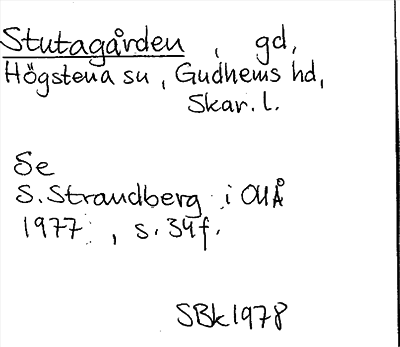 Stutagården, gd,
Högstena sn, Gudhems hd,
Skar. l.
Se
S. Strandberg i OUÅ
1977, s. 34f.
SBk1978